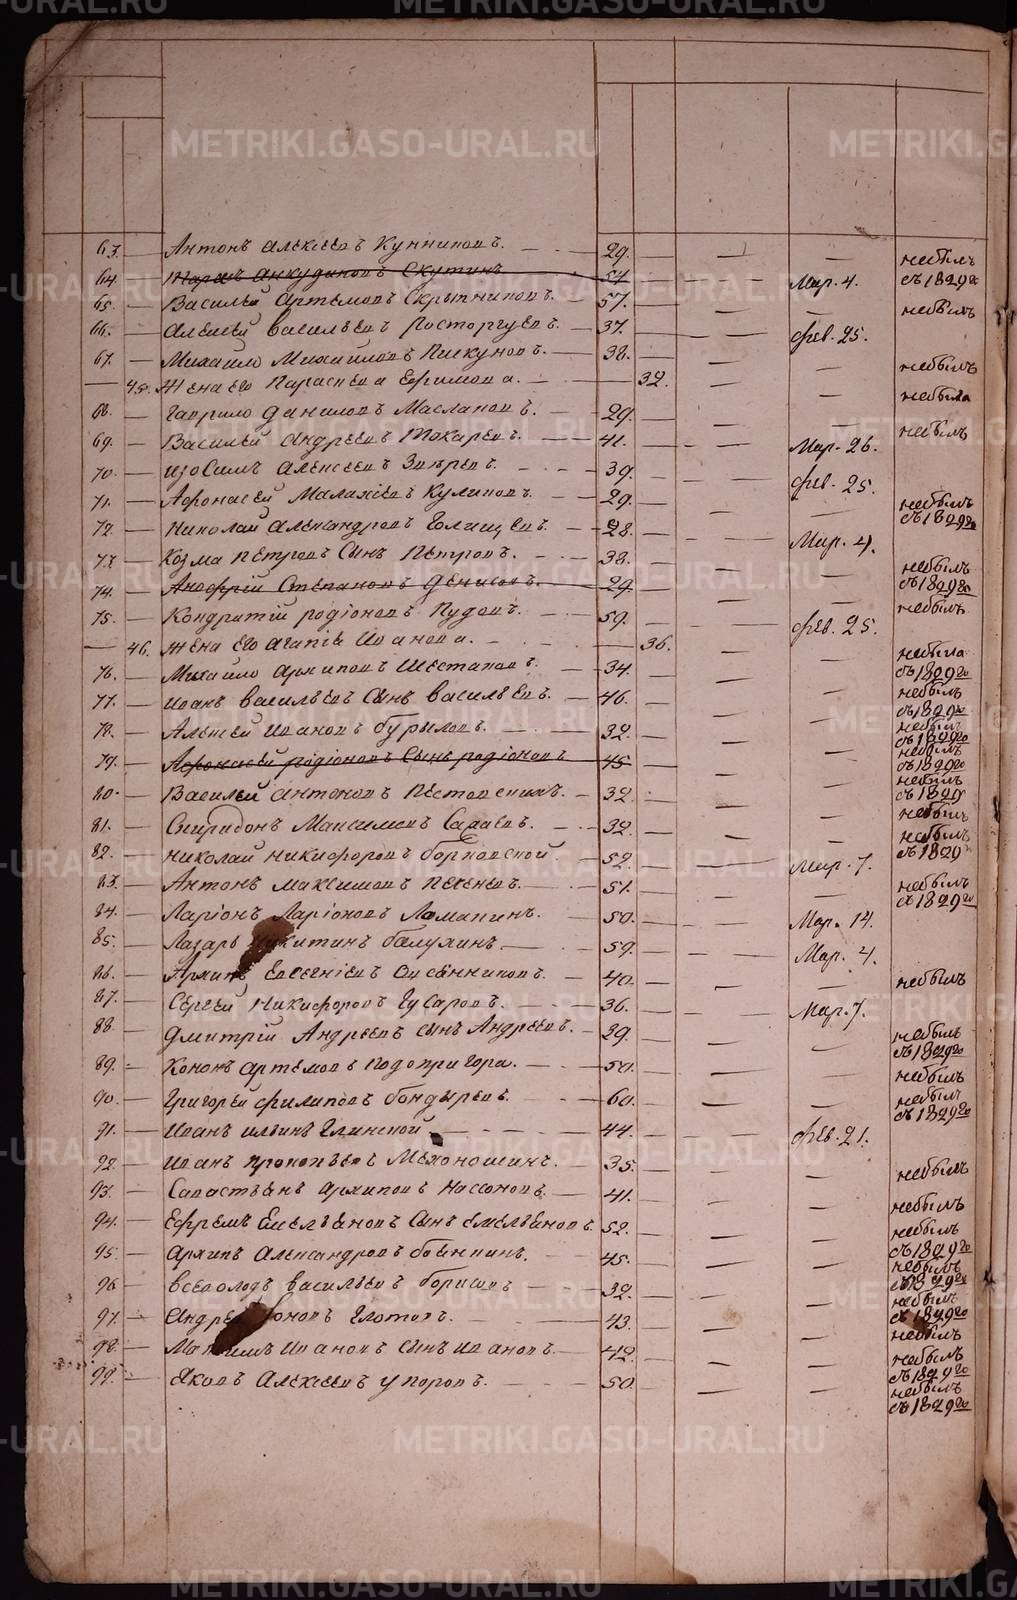 63. — Антонъ Алексеевъ Кунниковъ. — 29. — — небылъ
64. — Анкудиновъ Скутинъ — 54 — — Мар. 4. съ 1829го
65. — Василей Артемовъ Скрынниковъ. — 57. — — — небылъ
66. — Алексей Васильевъ Расторгуевъ — 37. — — фев. 25.
67. — Михайло Михайловъ Пискуновъ. — 38. — — — небылъ
— 45. Жена его Параскева Ефимова. — 32. — — небыла
68. — Гаврило Даниловъ Маслаковъ. — 29. — — — небылъ
69. — Василей Андреевъ Токаревъ. — 41. — — Мар. 26.
70. — Изосимъ Алексеевъ Зверевъ. — 39. — — фев. 25.
71. — Афонасей Малахиевъ Куликовъ. — 29. — — — небылъ съ 1829го
72. — Николай Александровъ Голищевъ — 28. — — Мар. 4.
73. — Козма Петровъ Сынъ Петровъ. — 38. — — — небылъ съ 1829го
74. — Степановъ Денисовъ. — 29. — — — небылъ
75. — Кондратий Родионовъ Пудовъ. — 59. — — фев. 25.
— 46. Жена его Агапия Иванова. — 36. — — небыла
76. — Михайло Архиповъ Шестаковъ — 34. — — — съ 1829го
77. — Иванъ Васильевъ Сынъ Васильевъ. — 46. — — — небылъ съ 1829го
78. — Алексей Ивановъ Бурыловъ. — 32. — — — небылъ съ 1829го
79. — Афонасей Родионовъ Сынъ Родионовъ — 45 — — — небылъ съ 1829го
80. — Василей Антоновъ — 32. — — — небылъ съ 1829
81. — Спиридонъ Максимовъ — 32. — — — небылъ
82. — Николай Никифоровъ Борковской. — 52. — — Мар. 7. небылъ съ 1829
83. — Антонъ Максимовъ Пехеневъ. — 51. — — — небылъ съ 1829го
84. — Ларионъ Ларионовъ Ломакинъ. — 50. — — Мар. 14.
85. — Лазарь Никитинъ Балухинъ — 59. — — Мар. 4.
86. — Архипъ Евсегниевъ Овсянниковъ. — 40. — — — небылъ
87. — Сергей Никифоровъ Гусаровъ. — 36. — — Мар. 7.
88. — Дмитрий Андреевъ Сынъ Андреевъ. — 29. — — — небылъ съ 1829го
89. — Кононъ Артемовъ Подопригора. — 50. — — — небылъ
90. — Григорей Филиповъ Бондыревъ. — 60. — — — небылъ съ 1829го
91. — Иванъ Ильинъ Глинской — 44. — — фев. 21.
92. — Иванъ Прокопьевъ Мехоношинъ. — 35. — — — небылъ
93. — Савастьянъ Архиповъ Нассоновъ — 41. — — — небылъ
94. — Ефремъ Емельяновъ Сынъ Емельяновъ. 52. — — — небылъ съ 1829го
95. — Архипъ Александровъ — 45. — — — небылъ съ 1829го
96 — Всеволодъ Васильевъ Борисовъ — 32. — — — небылъ съ 1829го
97. — Глотовъ. — 43. — — — небылъ
98. — Максимъ Ивановъ Сынъ Ивановъ. — 42. — — — небылъ съ 1829го
99. — Яковъ Алексеевъ Упоровъ. — 50. — — — небылъ съ 1829го